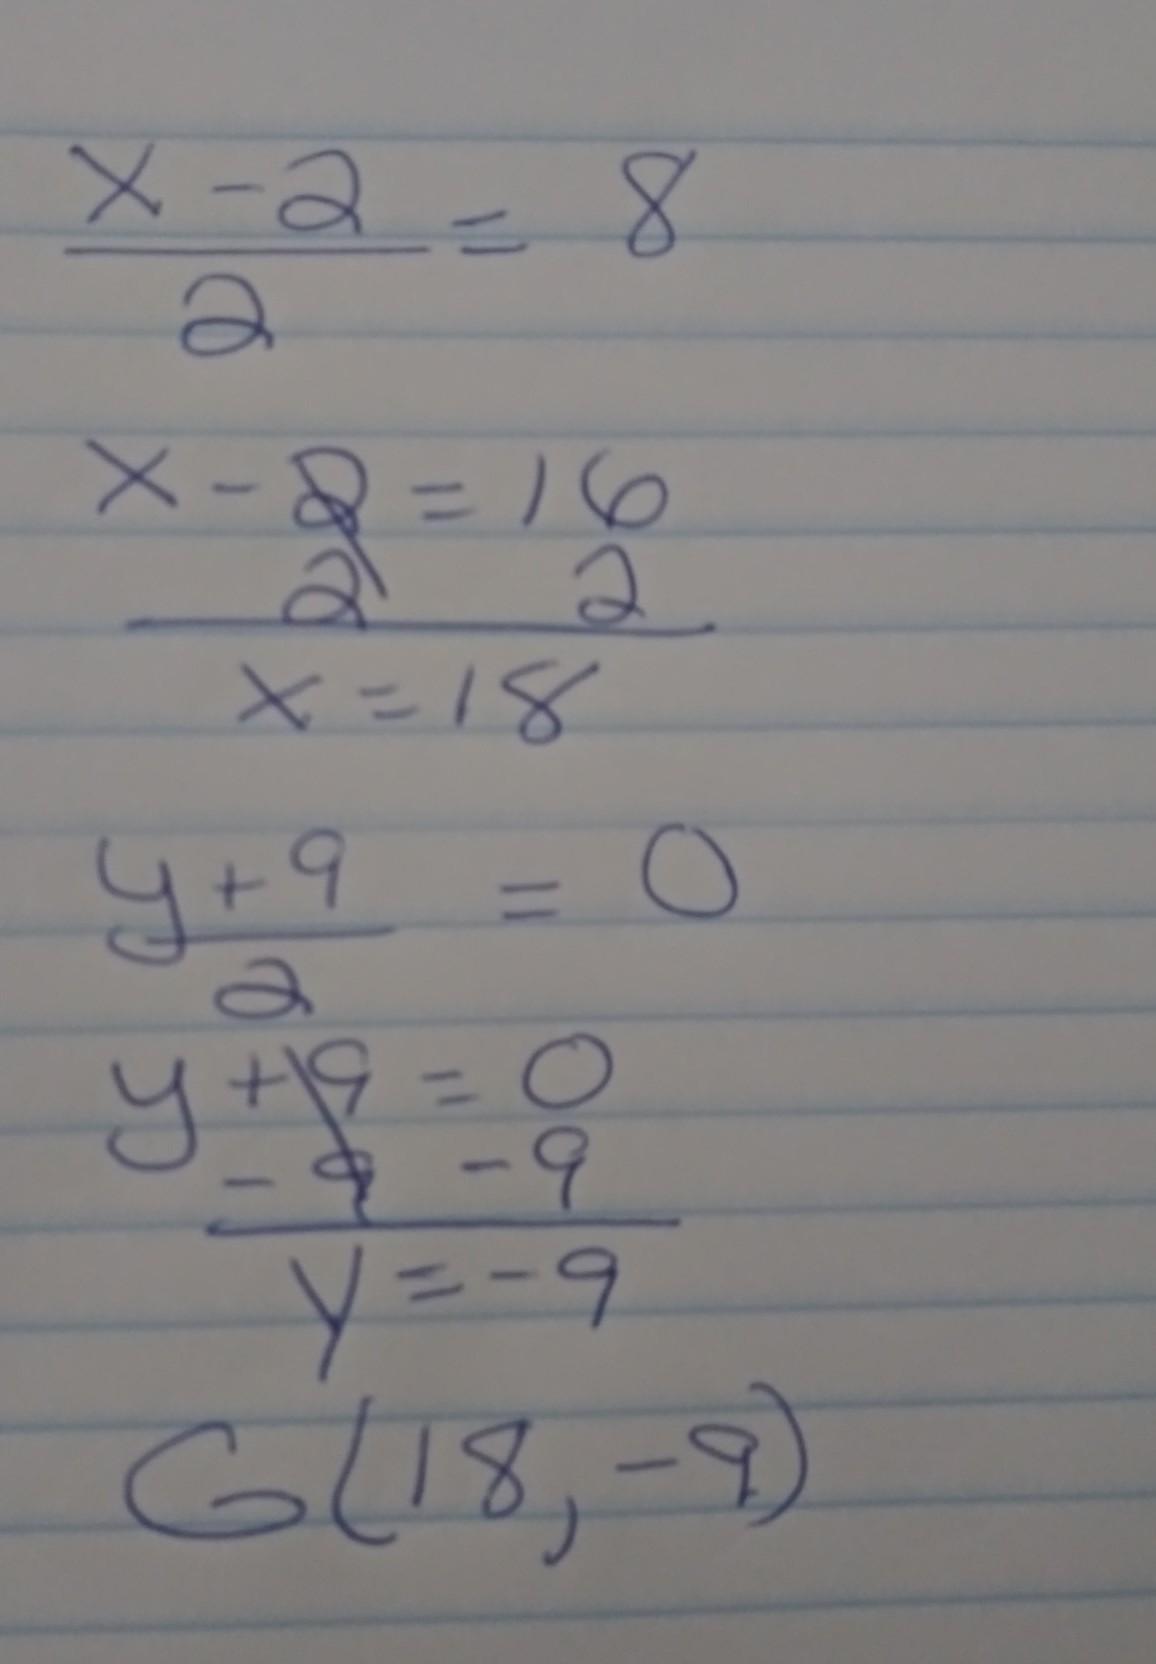 x - 2 = 8
2
x - 2 = 16
2 2
x = 18
y + 9 = 0
2
y + 9 = 0
- 9 - 9
y = - 9
G(18, -9)